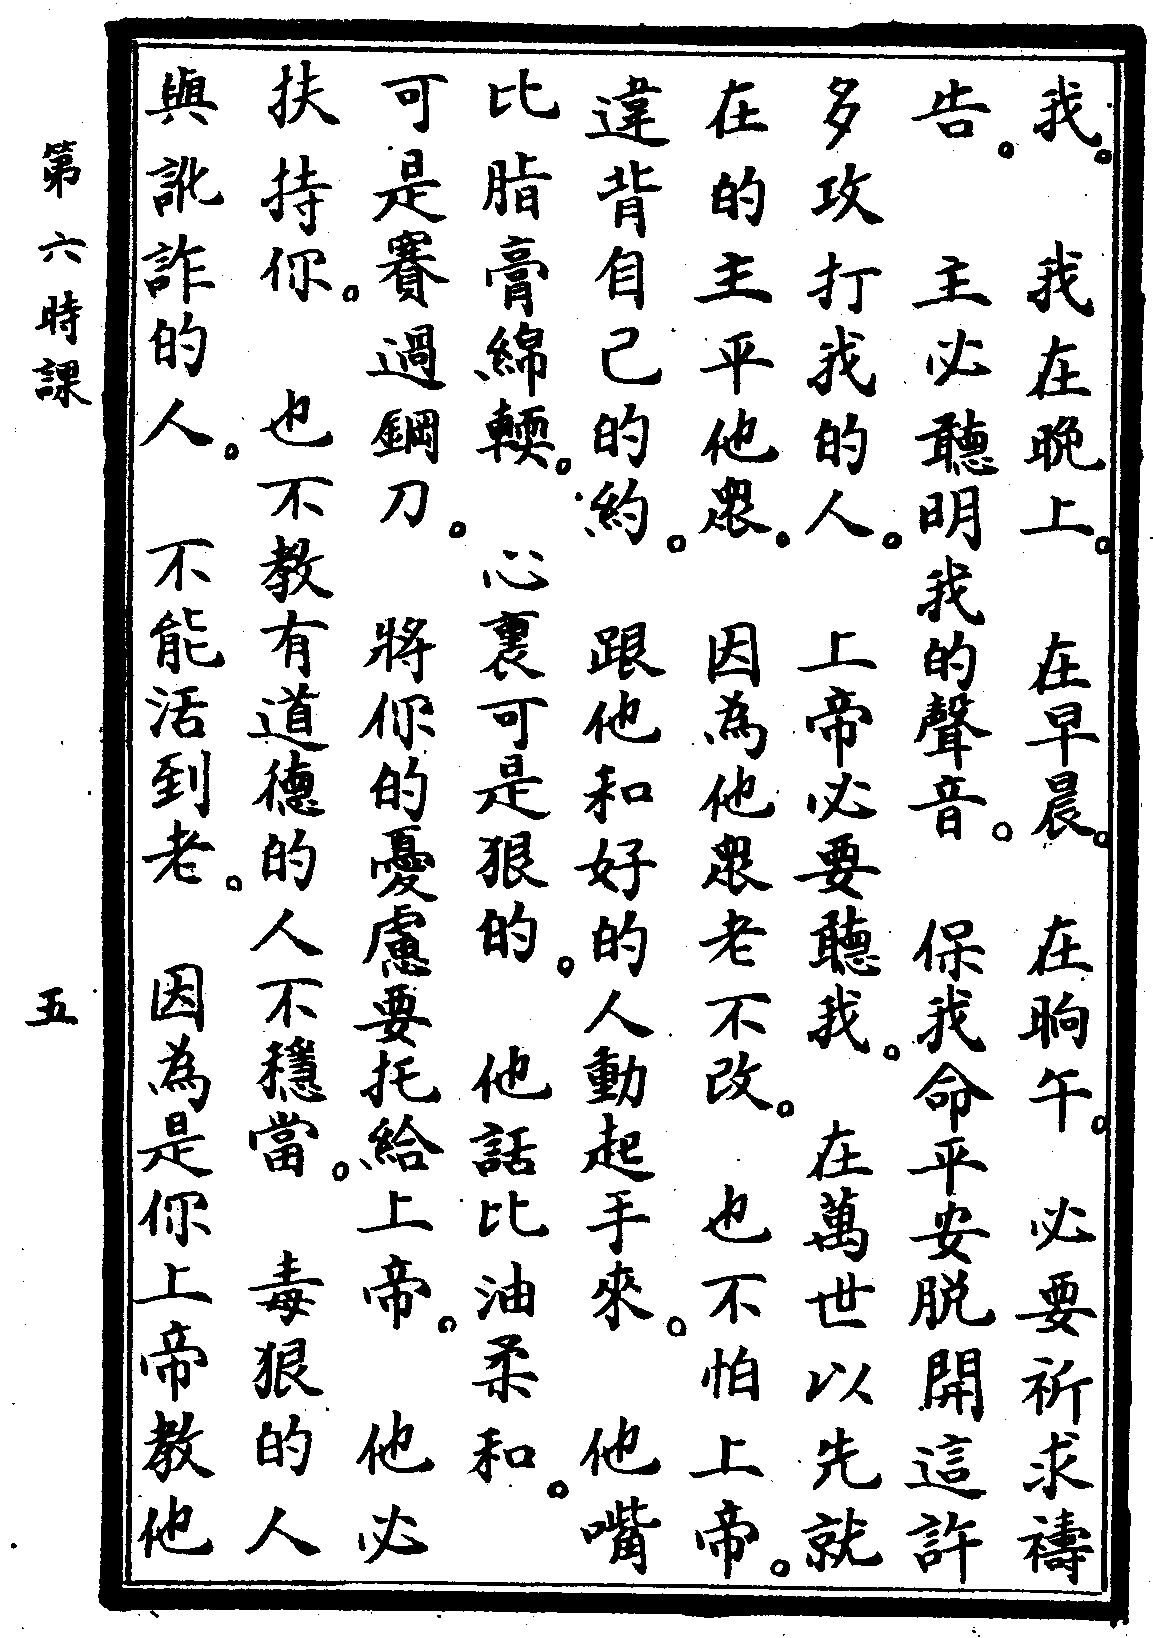 我。我在晚上。在早晨。在晌午。必要祈求禱
告。主必聽明我的聲音。保我命平安脫開這許
多攻打我的人。上帝必要聽我。在萬世以先就
在的主平他眾。因為他眾老不改。也不怕上帝。
違背自己的約。跟他和好的人動起手來。他嘴
比脂膏綿輭。心裏可是狠的。他話比油柔和。
可是賽過鋼刀。將你的憂慮要托給上帝。他必
扶持你。也不教有道德的人不穩當。毒狠的人
與訛詐的人。不能活到老。因為是你上帝教他
第六時課 五